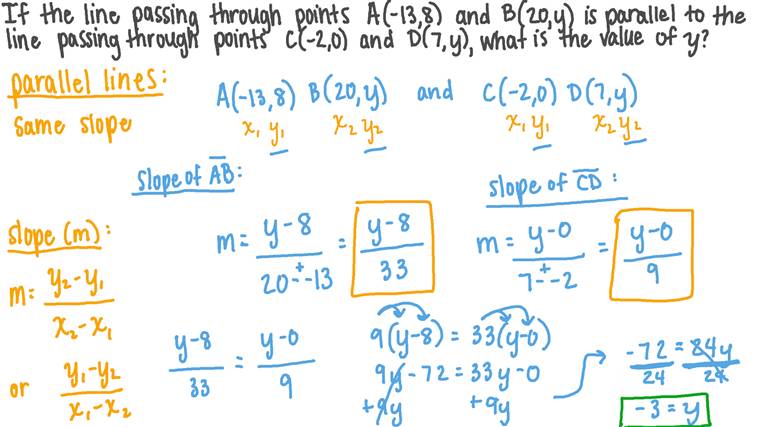 If the line passing through points A(-13,8) and B(20,y) is parallel to the
line passing through points C(-2,0) and D(7,y), what is the value of y?
parallel lines:
same slope
A(-13,8) B(20,y) and C(-2,0) D(7,y)
x₁ y₁ x₂ y₂ x₁ y₁ x₂ y₂
slope of AB:
slope of CD:
m = y-8 / 20--13 = y-8 / 33
+
m = y-0 / 7--2 = y-0 / 9
+
slope (m):
m = y₂-y₁ / x₂-x₁
or y₁-y₂ / x₁-x₂
y-8 / 33 = y-0 / 9
9(y-8) = 33(y-0)
9y-72 = 33y-0
+9y +9y
-72 = 84y
24 24
-3 = y